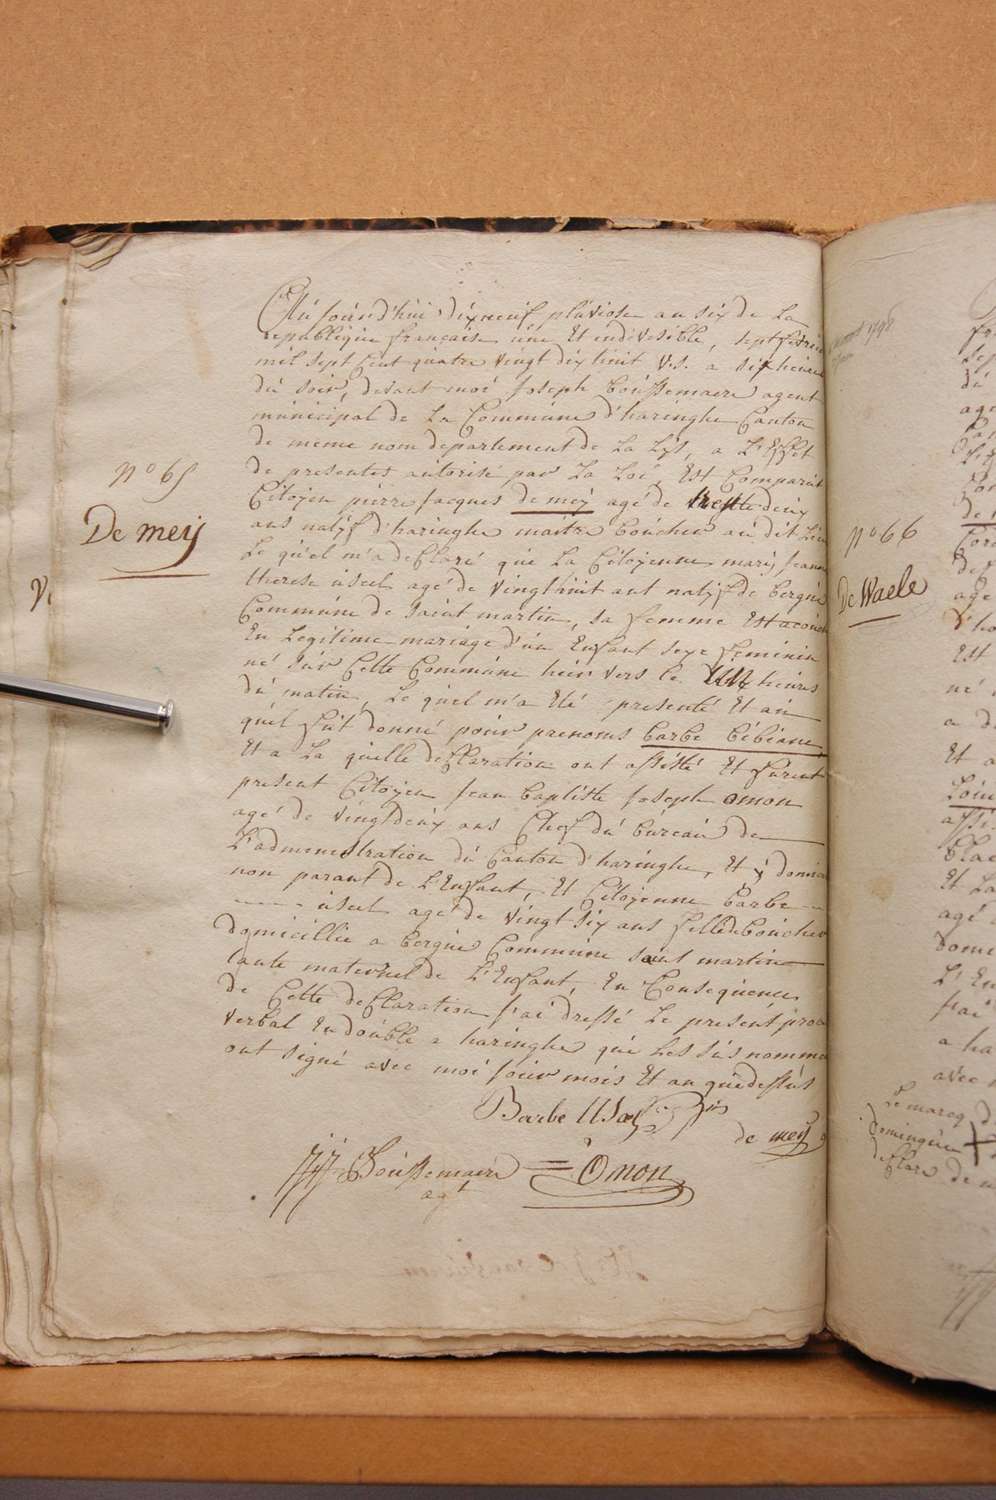 N° 65
De meij
Aujourd'hui dixneuf pluviose an six de La
republique française une Et indivisible, sept fevrier
mil sept cent quatre vingt dix huit v.s. a six heures
du soir, devant moi Joseph Boussemaere agent
municipal de La Commune d'haringhe Canton
de meme nom departement de La Lys, a L'Effet
de presentes autorisé par La Loi, Est Comparut
Citoyen pierre Jacques de meij agé de trente deux
ans natif d'haringhe maitre boucher au dit Lieu
Le quel m'a declaré que La Citoyenne marij Jeanne
therese user agé de vingthuit ans natif de bergue
Commune de saint martin, sa femme Est acouch
En Legitime mariage d'un Enfant sexe feminin
né sur Cette Commune hier vers le heures
du matin, Le quel m'a Eté presenté Et au
quel fut donné pour prenoms barbe bebiane,
Et a La quelle declaration ont assisté Et furent
present Citoyen Jean baptiste Joseph omon
agé de vingtdeux ans Chef du bureau de
L'administration du Canton d'haringhe, Et y domici
non parant de L'Enfant, Et Citoyenne barbe
agé de vingt six ans fille boucher
domicillie a bergue Commune saint martin
tante maternel de L'Enfant, En Consequence
de Cette declaration j'ai dressé Le present proce
verbal En double a haringhe que Les sus nomme
ont signé avec moi jour mois Et an que dessus
Barbe
de meij
Boussemaere
agt
Omon
N° 66
De Waele
Le marcq
dominique
declare de